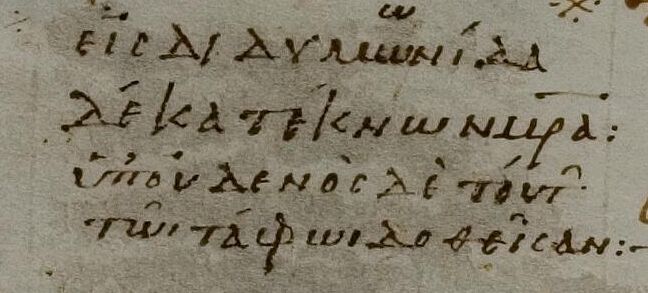 εἰς διδυμωνίδα
δέκα τέκνων μρ̅α̅:
ὑπ' οὐδενὸς δὲ τούτ
τῶι τάφωι δοθεῖσαν:-